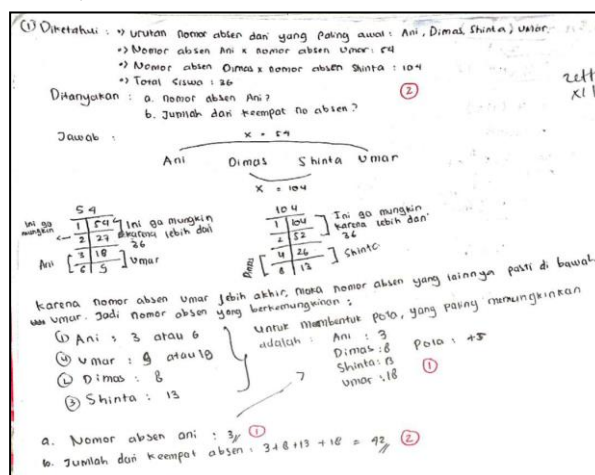 ① Diketahui : •) Urutan nomor absen dari yang paling awal : Ani, Dimas, Shinta, Umar
•) Nomor absen Ani x nomor absen Umar : 54
•) Nomor absen Dimas x nomor absen Shinta : 104
•) Total Siswa : 36
②
Ditanyakan : a. Nomor absen Ani?
b. Jumlah dari keempat no absen?
XI
Jawab :
x = 54
Ani Dimas Shinta Umar
x = 104
54
1 54
2 27
3 18
6 9
Ini ga mungkin
Ini ga mungkin karena lebih dari 36
Ani
Umar
104
1 104
2 52
4 26
8 13
Ini ga mungkin karena lebih dari 36
Dimas
Shinta
Karena nomor absen Umar lebih akhir, maka nomor absen yang lainnya pasti di bawah
Umar. Jadi nomor absen yang berkemungkinan :
① Ani : 3 atau 6
④ Umar : 9 atau 18
② Dimas : 8
③ Shinta : 13
Untuk membentuk pola, yang paling memungkinkan
adalah : Ani : 3
Dimas : 8
Shinta : 13
Umar : 18
Pola : +5
①
a. Nomor absen ani : 3 ①
b. Jumlah dari keempat absen : 3 + 8 + 13 + 18 = 42 ②